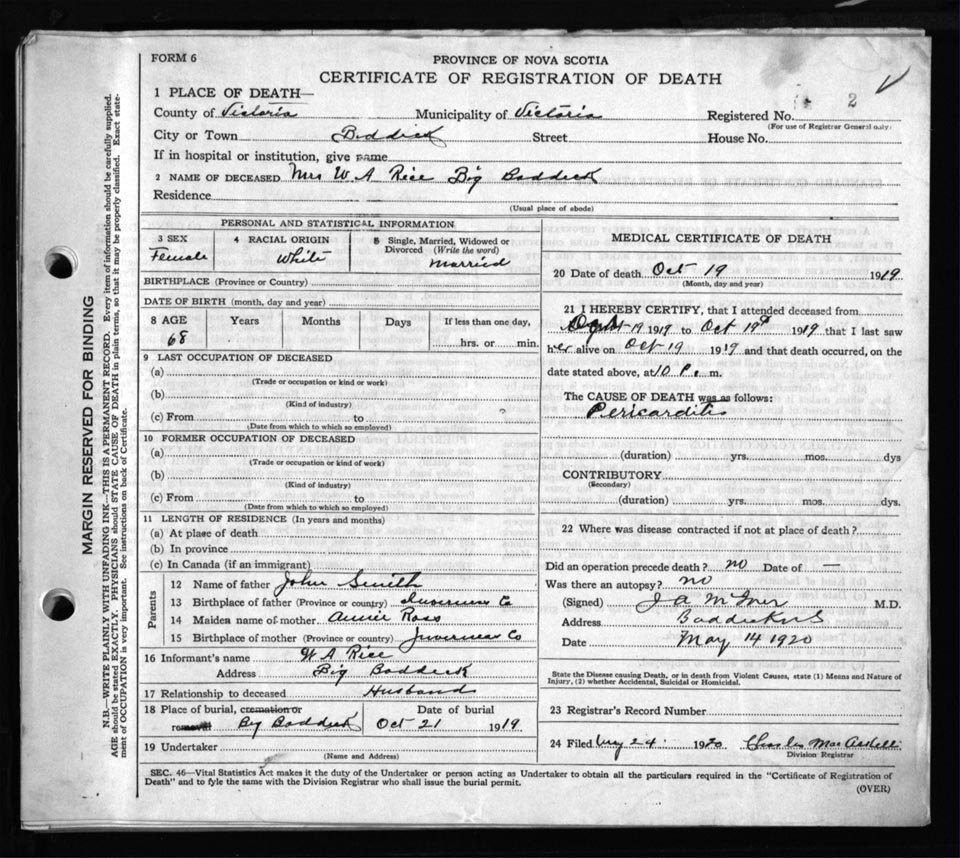 FORM 6
PROVINCE OF NOVA SCOTIA
CERTIFICATE OF REGISTRATION OF DEATH
1 PLACE OF DEATH—
County of Victoria Municipality of Victoria Registered No. 2
(For use of Registrar General only)
City or Town Beddeck Street House No.
If in hospital or institution, give name
2 NAME OF DECEASED Mrs W A Rice Big Baddeck
Residence
(Usual place of abode)
MARGIN RESERVED FOR BINDING
N.B.—WRITE PLAINLY WITH UNFADING INK—THIS IS A PERMANENT RECORD. Every item of information should be carefully supplied.
AGE should be stated EXACTLY. PHYSICIANS should STATE CAUSE OF DEATH in plain terms, so that it may be properly classified. Exact state-
ment of OCCUPATION is very important. See instructions on back of Certificate.
PERSONAL AND STATISTICAL INFORMATION
3 SEX 4 RACIAL ORIGIN 5 Single, Married, Widowed or
Divorced (Write the word)
Female White Married
BIRTHPLACE (Province or Country)
DATE OF BIRTH (month, day and year)
8 AGE Years Months Days If less than one day,
68 hrs. or min.
9 LAST OCCUPATION OF DECEASED
(a)
(Trade or occupation or kind or work)
(b)
(Kind of industry)
(c) From to
(Date from which to which so employed)
10 FORMER OCCUPATION OF DECEASED
(a)
(Trade or occupation or kind of work)
(b)
(Kind of industry)
(c) From to
(Date from which to which so employed)
11 LENGTH OF RESIDENCE (In years and months)
(a) At place of death
(b) In province
(c) In Canada (if an immigrant)
Parents
12 Name of father John Smith
13 Birthplace of father (Province or country) Inverness Co
14 Maiden name of mother Annie Ross
15 Birthplace of mother (Province or country) Inverness Co
16 Informant's name W A Rice
Address Big Baddeck
17 Relationship to deceased Husband
18 Place of burial, cremation or Date of burial
removal Big Baddeck Oct 21 1919
19 Undertaker
(Name and Address)
MEDICAL CERTIFICATE OF DEATH
20 Date of death Oct 19 1919
(Month, day and year)
21 I HEREBY CERTIFY, that I attended deceased from
19 1919 to Oct 19th 1919 that I last saw
her alive on Oct 19 1919 and that death occurred, on the
date stated above, at 10 P. m.
The CAUSE OF DEATH was as follows:
Pericarditis
(duration) yrs. mos. dys
CONTRIBUTORY
(Secondary)
(duration) yrs. mos. dys.
22 Where was disease contracted if not at place of death?
Did an operation precede death? no Date of —
Was there an autopsy? no
(Signed) J A M M.D.
Address Baddeck N S
Date May 14 1920
State the Disease causing Death, or in death from Violent Causes, state (1) Means and Nature of
Injury, (2) whether Accidental, Suicidal or Homicidal.
23 Registrar's Record Number
24 Filed 24 1920 Charles MacAskill
Division Registrar
SEC. 46—Vital Statistics Act makes it the duty of the Undertaker or person acting as Undertaker to obtain all the particulars required in the "Certificate of Registration of
Death" and to fyle the same with the Division Registrar who shall issue the burial permit.
(OVER)